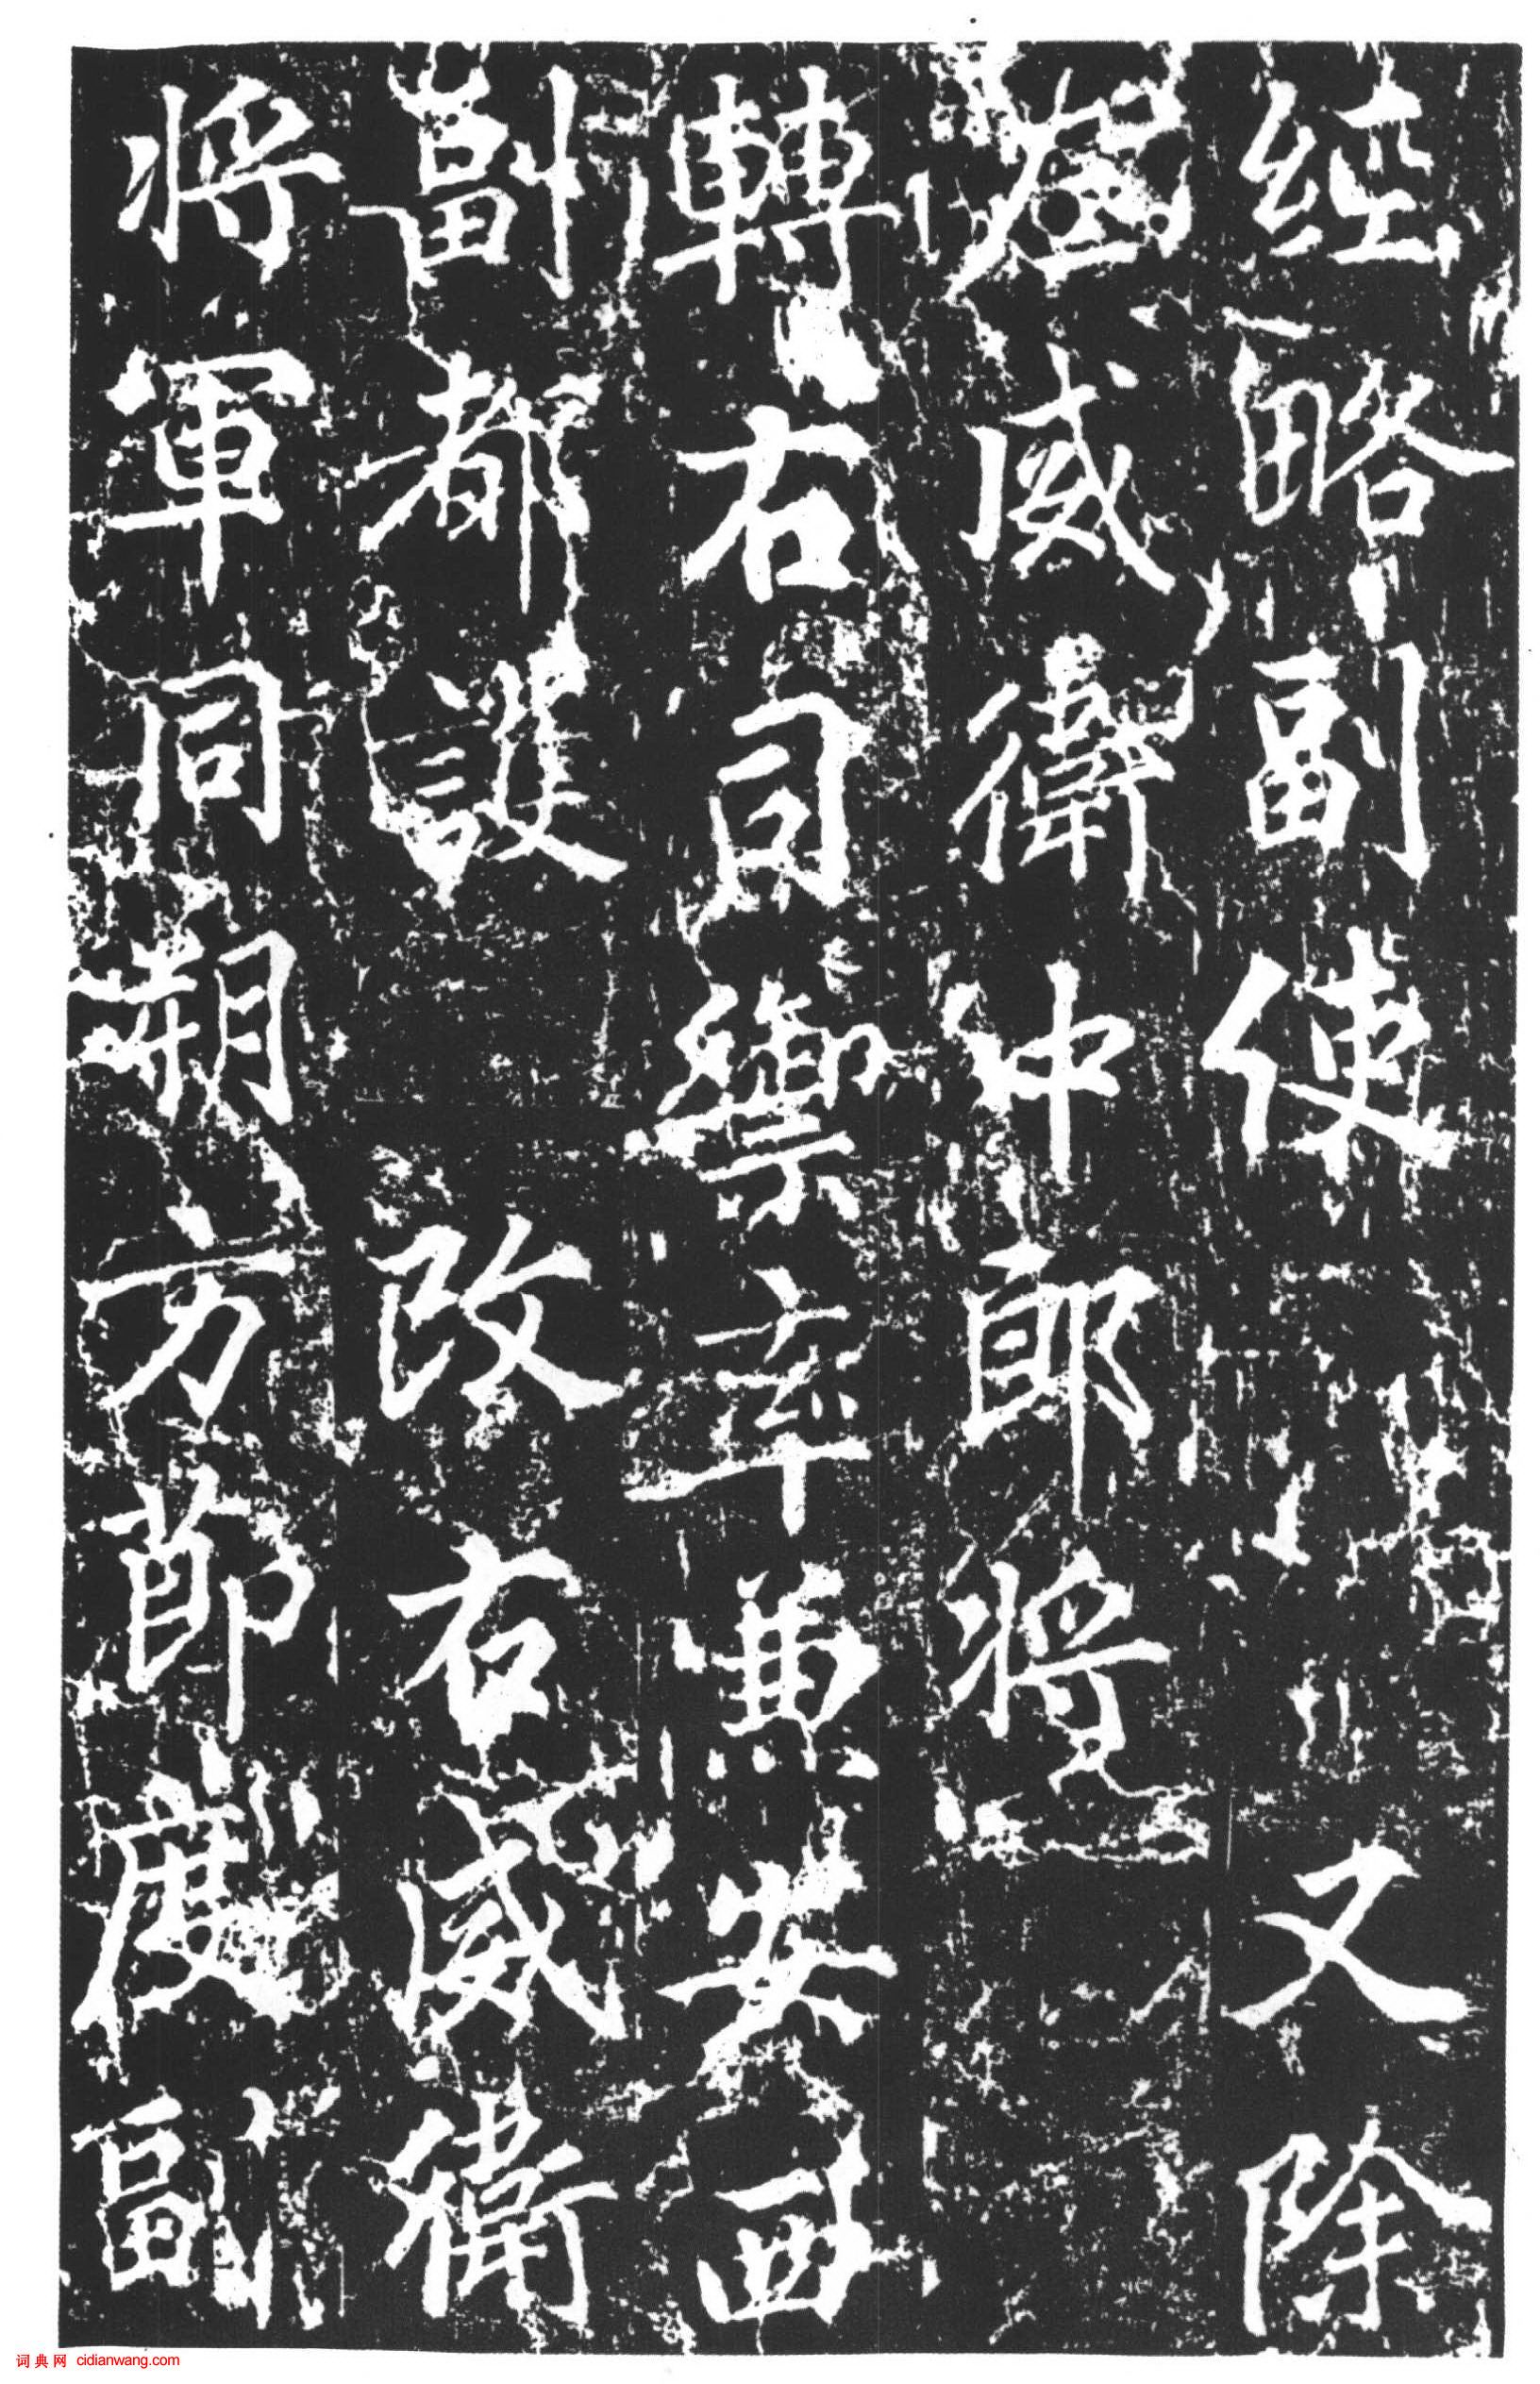 經略副使又除
左威衛中郎將
轉右司禦率兼安西
副都護改右威衛
將軍同朔方節度副
词典网 cidianwang.com